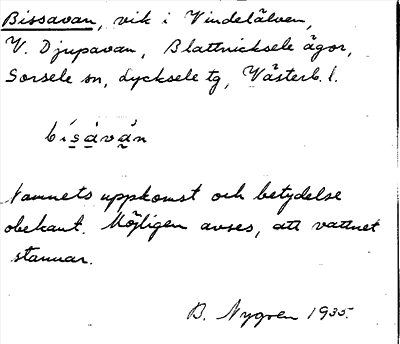 Bissavan, vik i Vindelälven,
V. Djupavan, Blattnicksele ägor,
Sorsele sn, Lycksele tg, Västerb. l.
bísavàn
Namnets uppkomst och betydelse
obekant. Möjligen avses, att vattnet
stannar.
B. Nygren 1935.